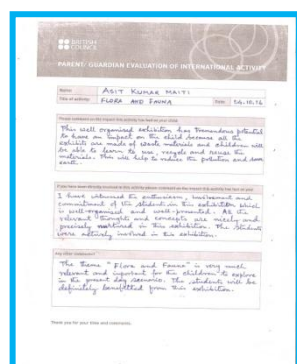 BRITISH
COUNCIL
PARENT/ GUARDIAN EVALUATION OF INTERNATIONAL ACTIVITY
Name: ASIT KUMAR MAITI
Title of activity: FLORA AND FAUNA Date: 24.10.16
Please comment on the impact this activity has had on your child
This well organised exhibition has tremendous potential
to have an impact on the child because all the
exhibits are made of waste materials and children will
be able to learn to use, recycle and reuse the
materials. This will help to reduce the pollution and save
earth.
If you have been directly involved in this activity please comment on the impact this activity has had on you
I have witnessed the enthusiasm, involvement and
commitment of the students in this exhibition which
is well-organised and well-presented. All the
relevant thoughts and concepts are nicely and
precisely in this exhibition. The students
were actively involved in this exhibition.
Any other comments
The theme "Flora and Fauna" is very much
relevant and important for the children to explore
in the present day scenario. The students will be
definitely benefitted from this exhibition.
Thank you for your time and comments.